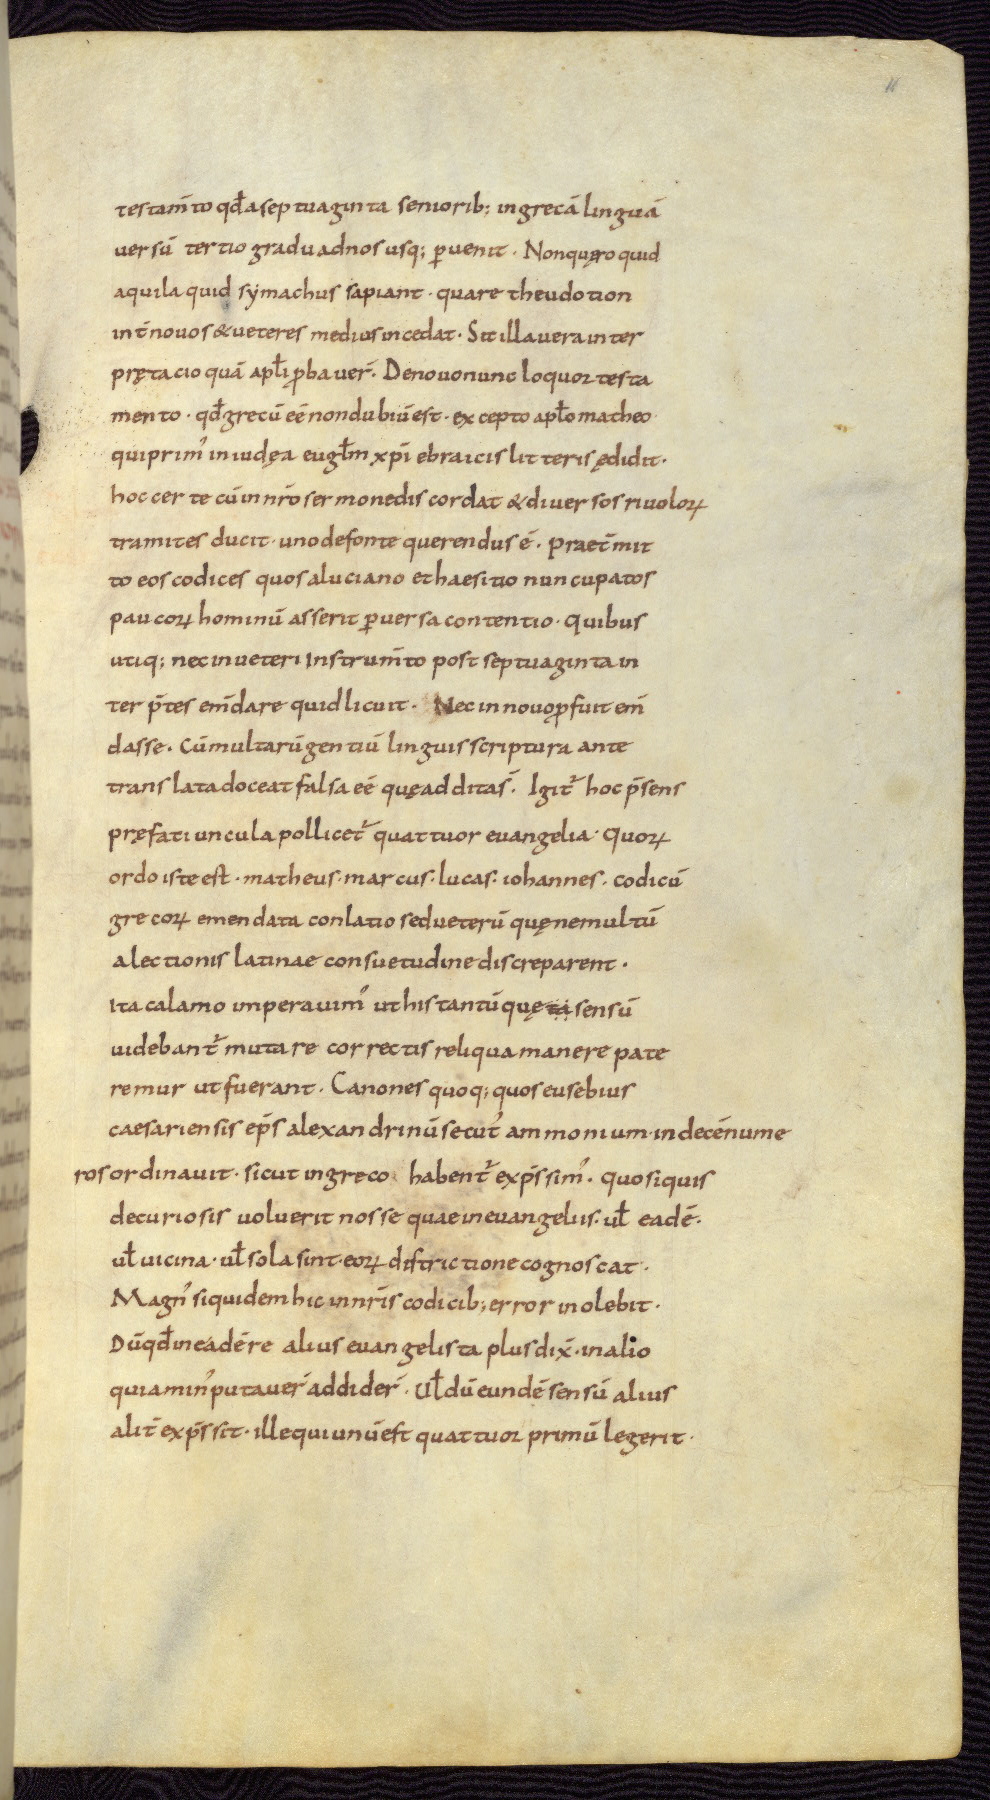 11
testam̄to qđ a septuaginta seniorib; in grecā linguā
uersū tertio gradu ad nos usq; ꝑuenit · Non quęro quid
aquila quid sẏmachus sapiant · quare theudotion
int̄ nouos & ueteres medius incedat · Sit illa uera inter
prętacio quā apłi ꝓbauer̄ · De nouo nunc loquor testa
mento · qđ grecū eē non dubiū est · excepto apło matheo
qui prim᾽ in iudęa eugłm xp̄i ebraicis litteris ędidit ·
hoc certe cū in nr̄o sermone discordat & diuersos riuoloꝝ
tramites ducit · uno de fonte querendus ē · Praet̄mit
to eos codices quos a luciano et haesitio nuncupatos
paucoꝝ hominū asserit ꝑuersa contentio · Quibus
utiq; nec in ueteri Instrum̄to post septuaginta in
terp̄tes em̄dare quid licuit · Nec in nouo ꝓfuit em̄
dasse · Cū multarū gentiū linguis scriptura ante
translata doceat falsa eē quę addita s̄ · Igit᷑ hoc p̄sens
pręfatiuncula pollicet᷑ quattuor euangelia · Quoꝝ
ordo iste est · matheus · marcus · lucas · iohannes · codicū
grecoꝝ emendata conlatio sed ueterū quę ne multū
a lectionis latinae consuetudine discreparent ·
Ita calamo imperauim᾽ ut his tantū quę ta sensū
uidebant᷑ mutare correctis reliqua manere pate
remur ut fuerant · Canones quoq; quos eusebius
caesariensis ep̄s alexandrinū secut᾽ ammonium · in decē nume
ros ordinauit · sicut in greco habent᷑ exp̄ssim᾽ · quo si quis
de curiosis uoluerit nosse quae in euangeliis · uł eadē ·
uł uicina · uł sola sint · eoꝝ districtione cognoscat ·
Magn᾽ siquidem hic in nr̄is codicib; error inolebit ·
Dū qđ in eadē re alius euangelista plus dix̄ · in alio
quia min᾽ putauer̄ addider̄ · Uł dū eundē sensū alius
alit̄ exp̄ssit · ille qui unū est quattuor primū legerit ·